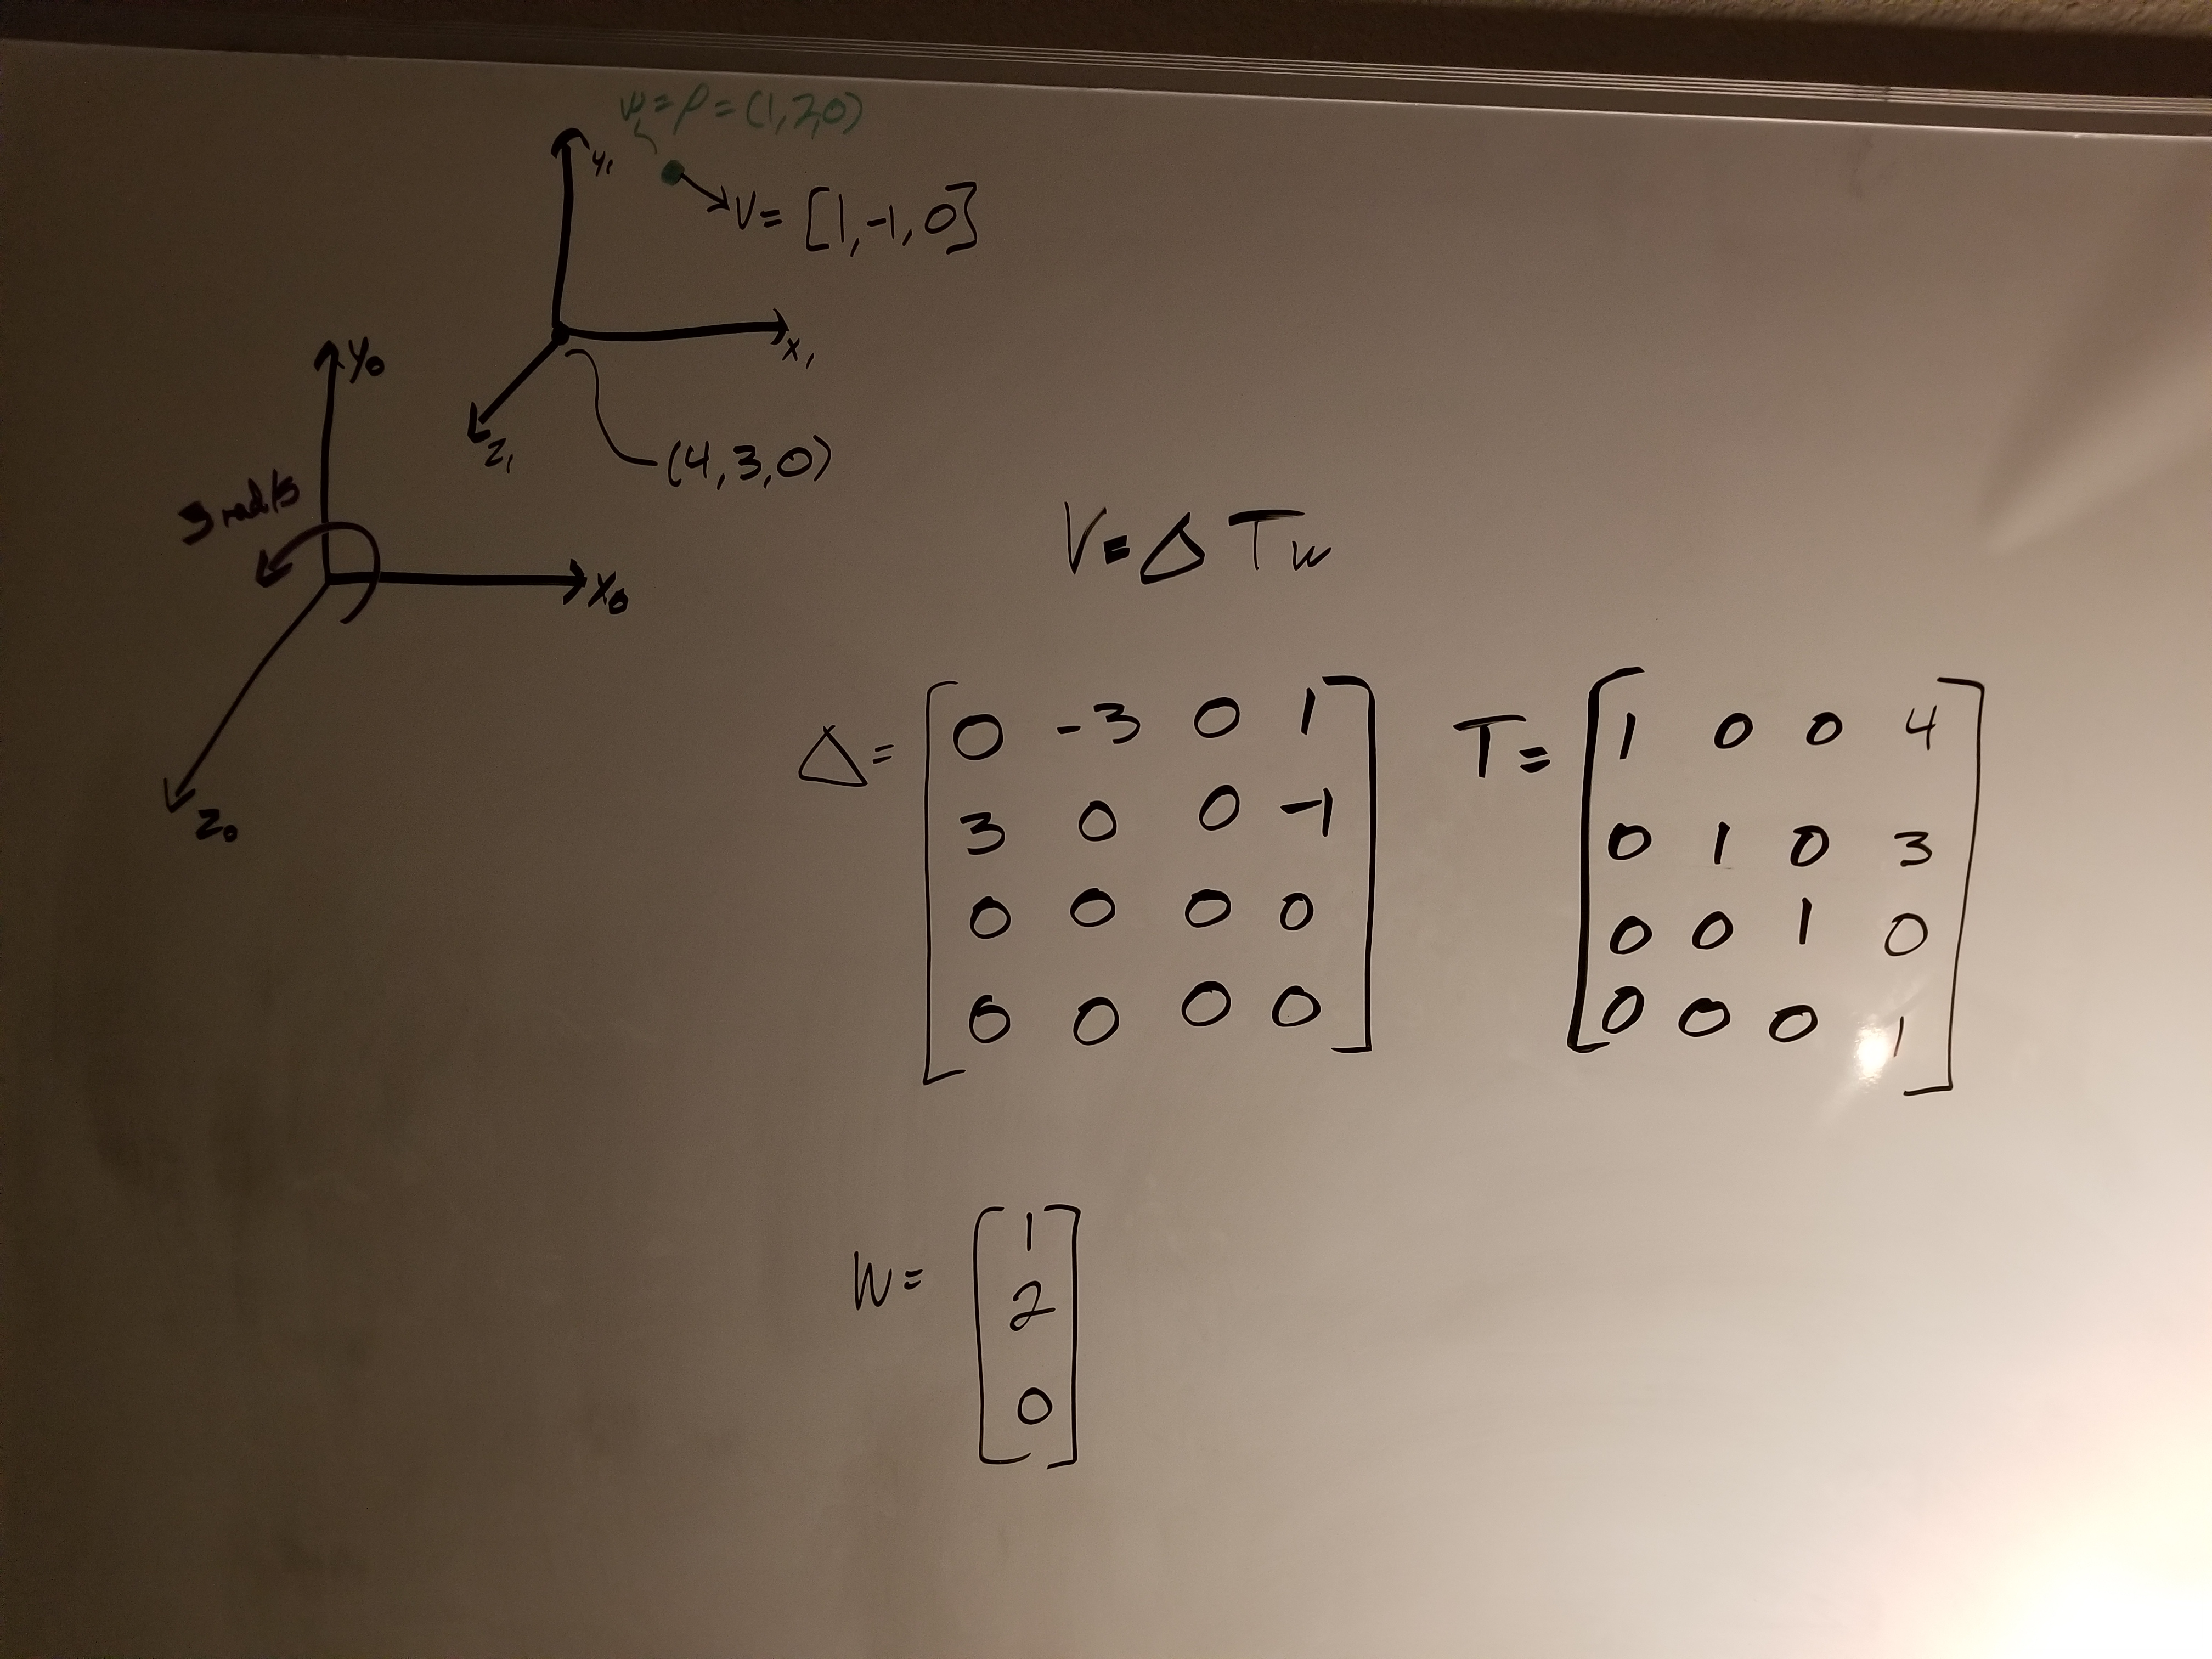 w = P = (1,2,0)
y₁
V = [1,-1,0]
x₁
y₀
z₁
(4,3,0)
3 rad/s
x₀
z₀
V = Δ T w
Δ = [0 -3 0 1
3 0 0 -1
0 0 0 0
0 0 0 0]
T = [1 0 0 4
0 1 0 3
0 0 1 0
0 0 0 1]
W = [1
2
0]